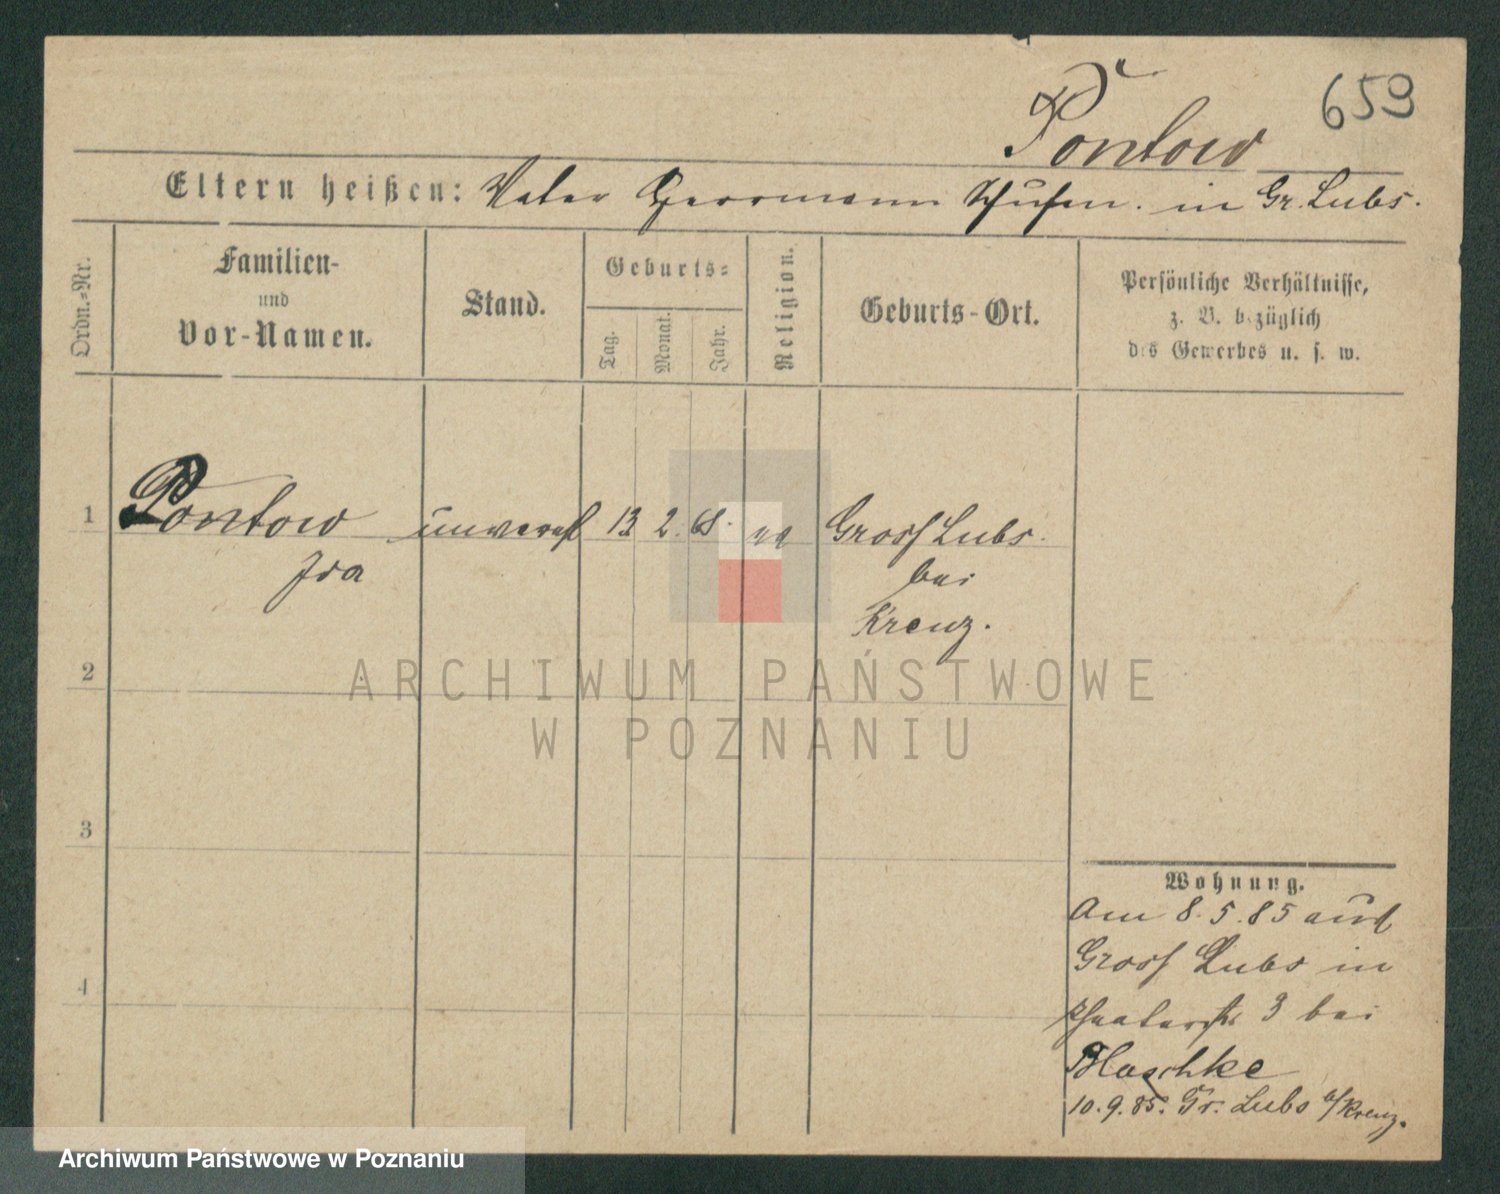 659
Pontow
Eltern heißen: Vater Herrmann Schufm. in Gr. Lubs.
Ordn.-Nr.
Familien-
und
Vor-Namen.
Stand.
Geburts-
Tag.
Monat.
Jahr.
Religion.
Geburts-Ort.
Persönliche Verhältnisse,
z. B. bezüglich
des Gewerbes u. s. w.
1 Pontow unverehl 13 2. 68. ev Gross Lubs.
Ida bei
Kreuz.
2
3
4
Wohnung.
Am 8.5.85 aus
Gross Lubs in
Theaterstr 3 bei
Blaschke
10.9.85. Gr. Lubs b/Kreuz.
ARCHIWUM PAŃSTWOWE
W POZNANIU
Archiwum Państwowe w Poznaniu